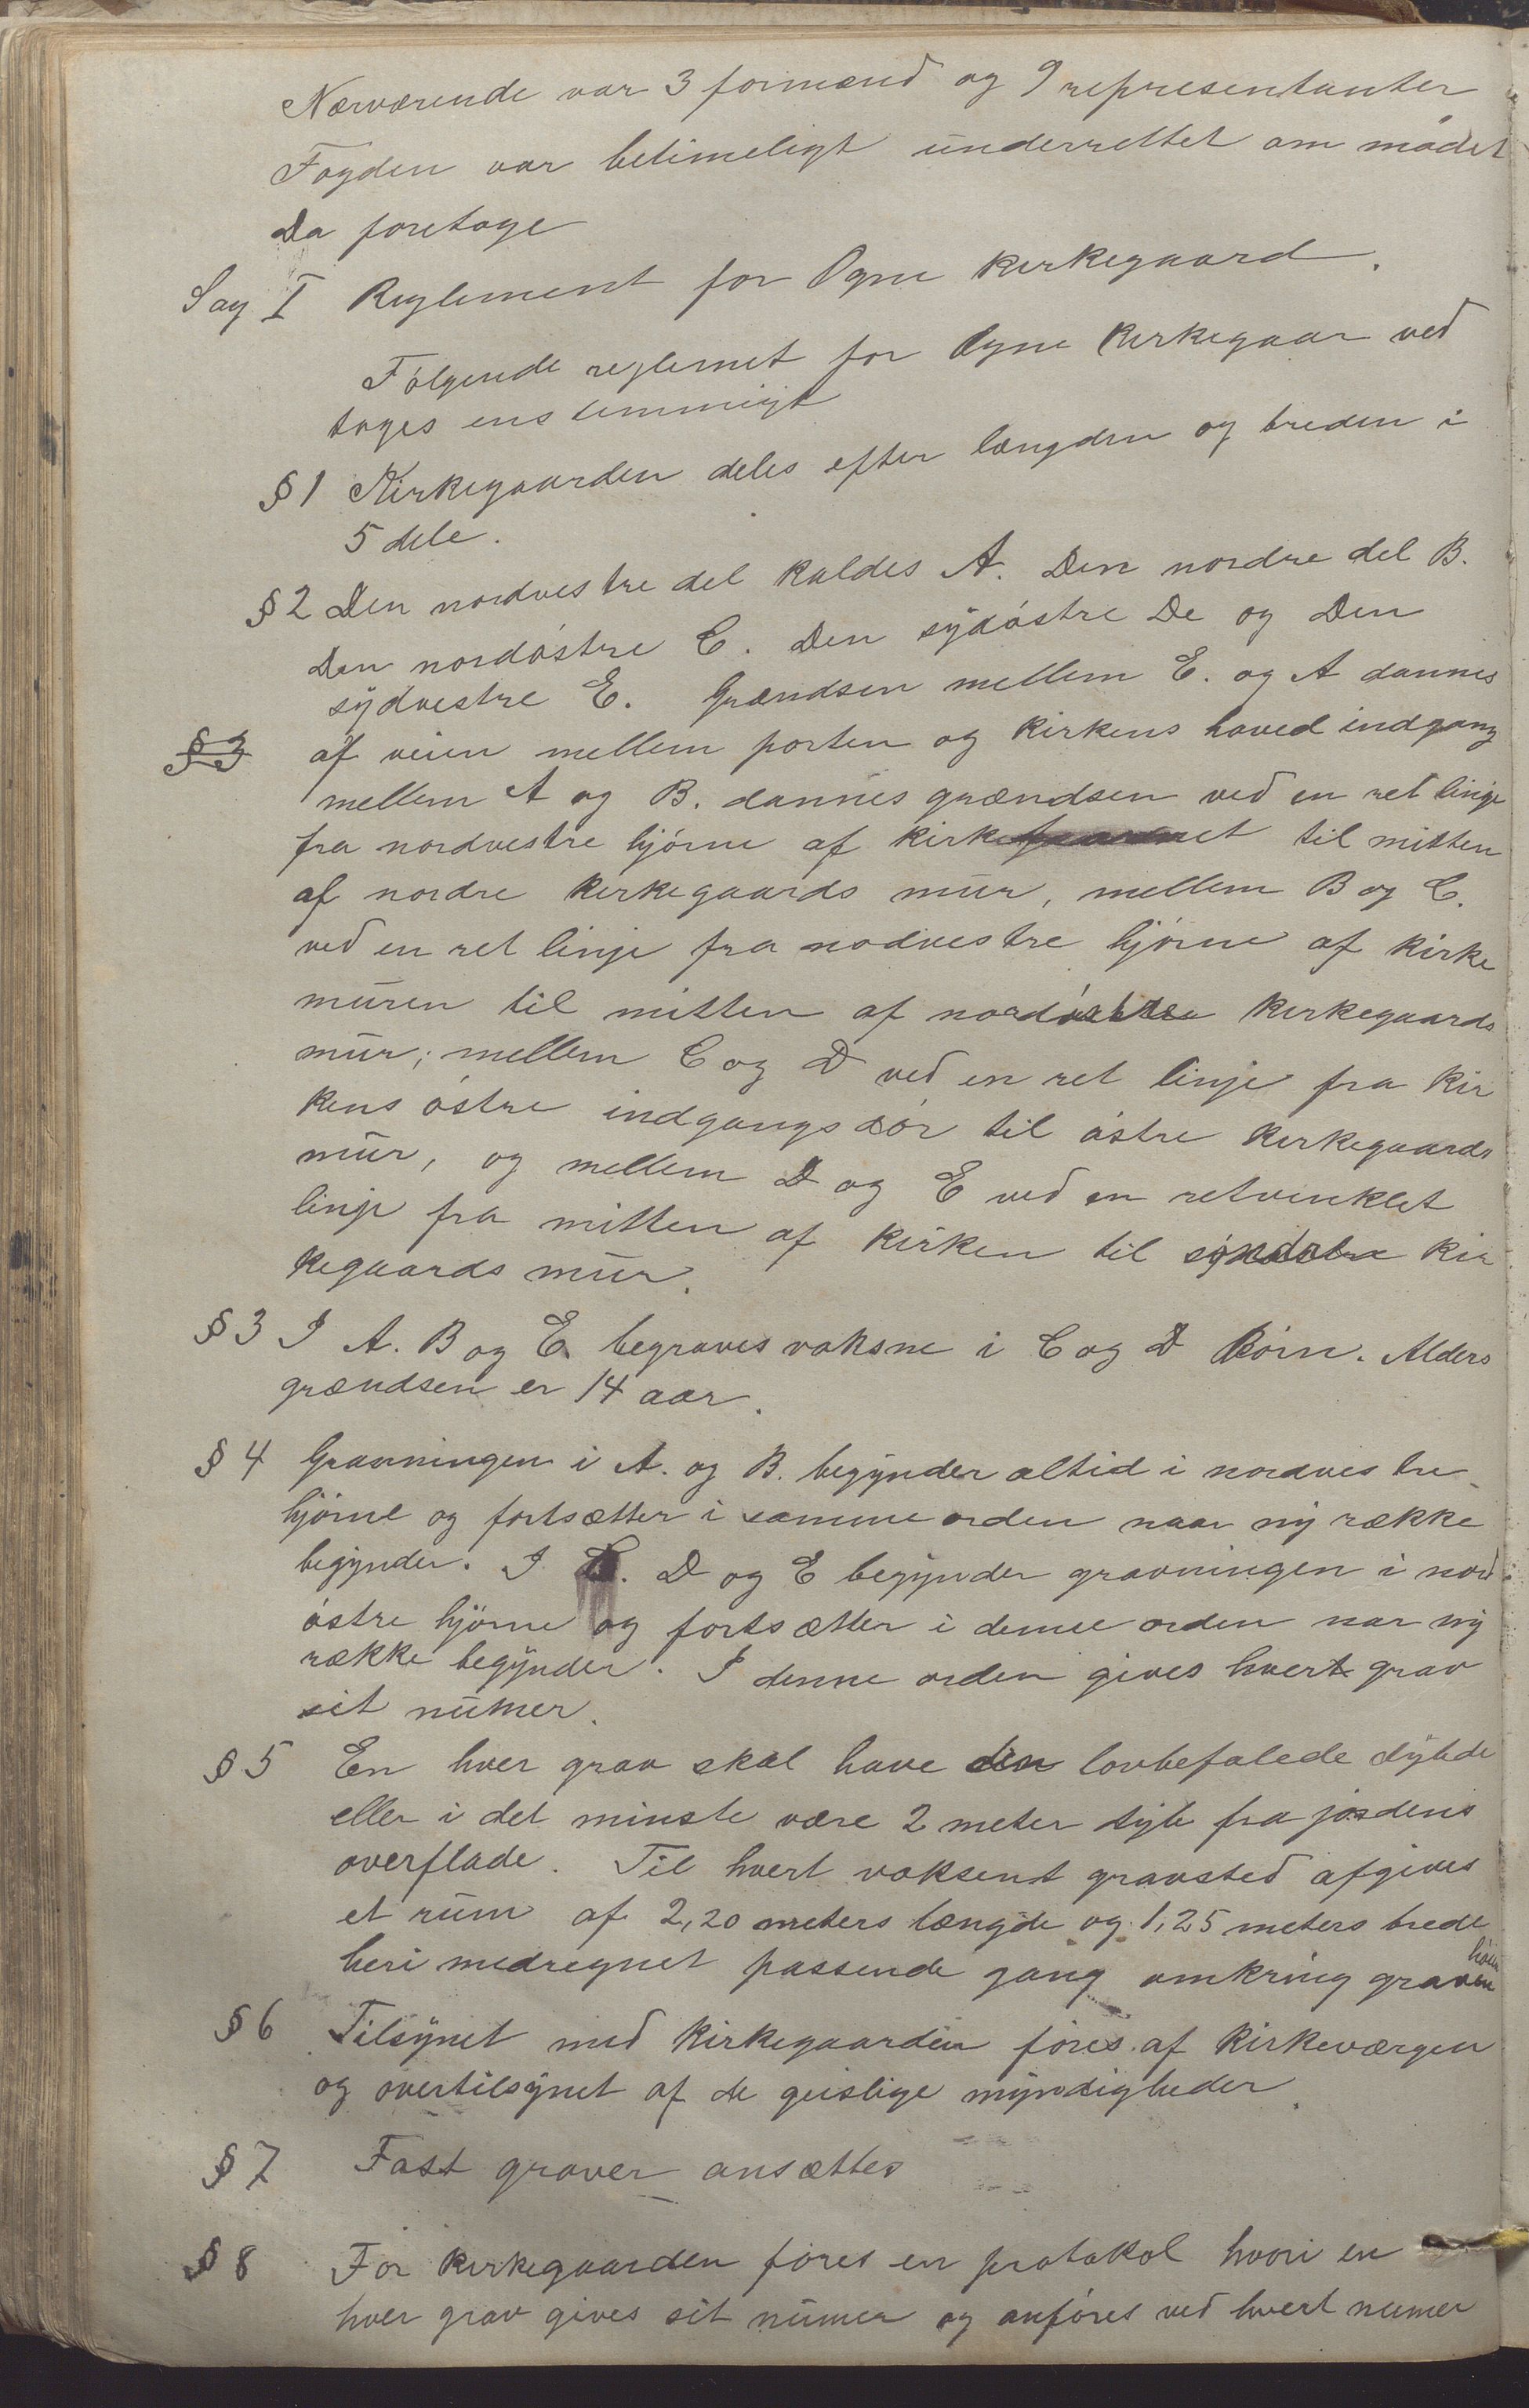 Nærværende var 3 formænd og 9 representanter
Fogden var betimeligt underrettet om mødet
Da foretoge
Sag I Reglement for Ogne kirkegaard.
Følgende reglemet for Ogne Kirkegaar ved
toges enstemmigt
§ 1 Kirkegaarden deles efter længden og breden i
5 dele.
§ 2 Den nordvestre del kaldes A. Den nordre del B.
Den nordøstre C. Den sydøstre De og Den
sydvestre E. Grændsen mellem E. og A dannes
§ 3 af veien mellem porten og kirkens hoved indgang
mellem A og B. dannes grændsen ved en ret linje
fra nordvestre hjørne af kirke til mitten
af nordre kirkegaards mur, mellem B og C.
ved en ret linje fra nodvestre hjørne af kirke
muren til mitten af nordøstre kirkegaards
mur; mellem C og D ved en ret linje fra kir
kens østre indgangsdør til østre kirkegaards
mur, og mellem D og E ved en retvinklet
linje fra mitten af kirken til kir
kegaards mur.
§ 3 I A. B og E. begraves voksne i C og D Børn. Alders
grændsen er 14 aar.
§ 4 Gravningen i A. og B. begynder altid i nordvestre
hjørne og fortsætter i samme orden naar ny række
begynder. I C. D og E begynder gravningen i nord
østre hjørne og fortsætter i denne orden nar ny
række begynder. I denne orden gives hvert grav
sit numer.
§ 5 En hver grav skal have den lovbefalede dybde
eller i det minste være 2 meter dyb fra jordens
overflade. Til hvert voksent gravsted afgives
et rum af 2,20 meters længde og 1,25 meters brede
heri medregnet passende gang omkring graven
§ 6 Tilsynet med kirkegaarden føres af kirkeværgen
og overtilsynet af de geislige myndigheder.
§ 7 Fast graver ansættes
§ 8 For kirkegaarden føres en protokol hvori en
hver grav gives sit numer og anføres ved hvert numer